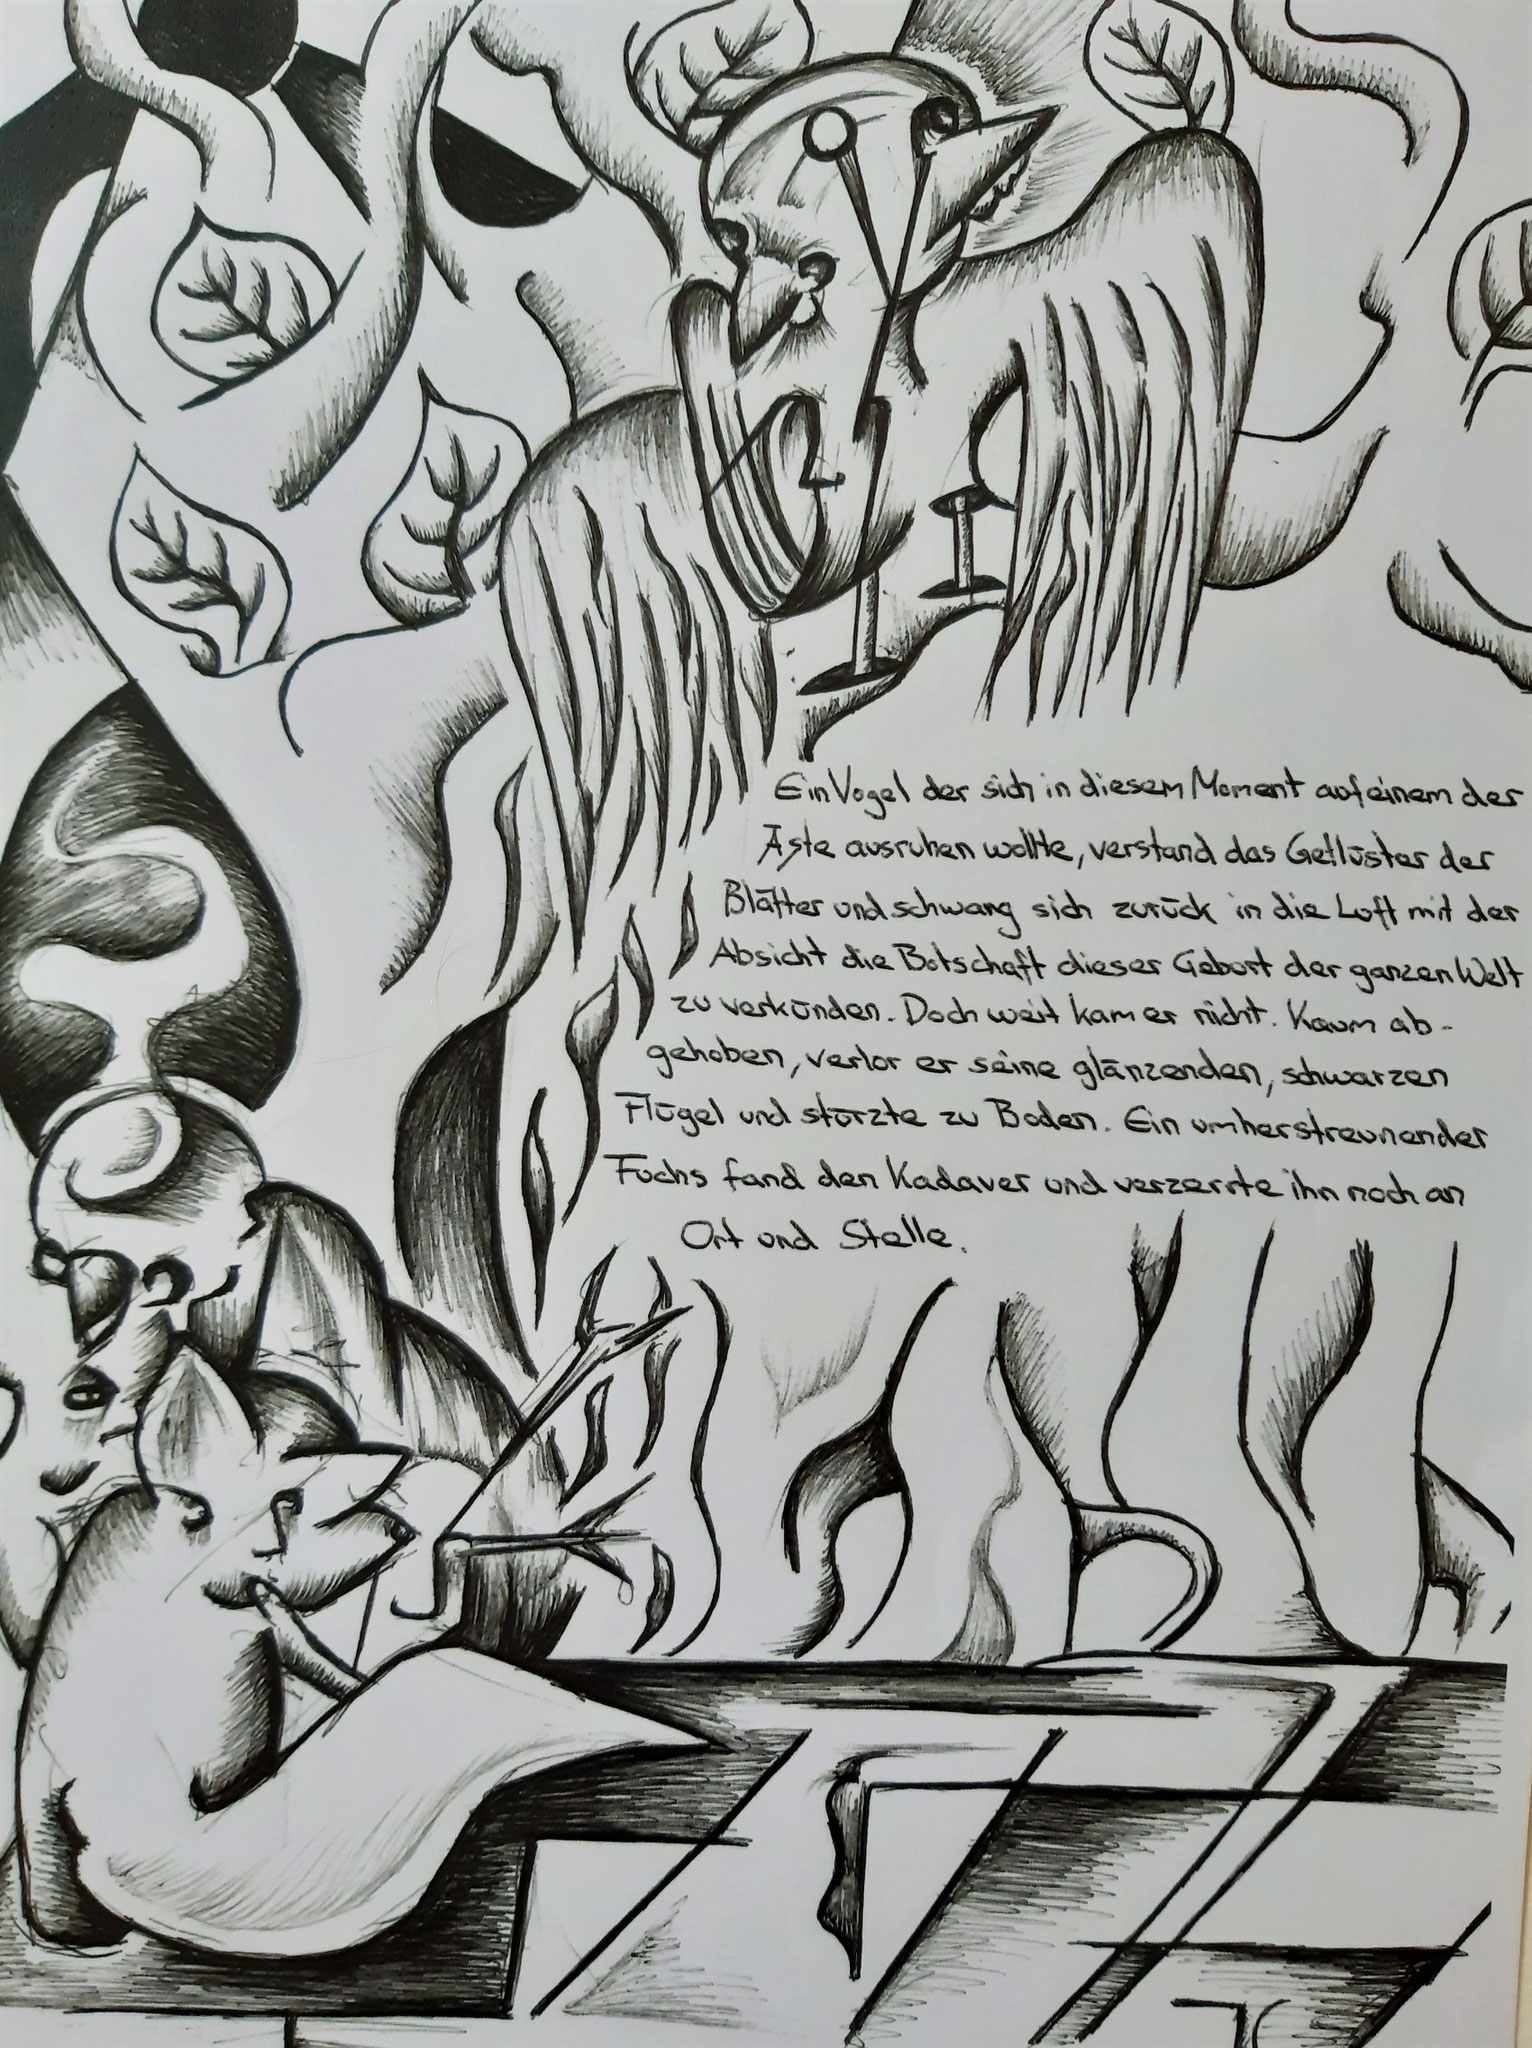 Ein Vogel der sich in diesem Moment auf einem der
Äste ausruhen wollte, verstand das Geflüster der
Blätter und schwang sich zurück in die Luft mit der
Absicht die Botschaft dieser Geburt der ganzen Welt
zu verkünden. Doch weit kam er nicht. Kaum ab-
gehoben, verlor er seine glänzenden, schwarzen
Flügel und stürzte zu Boden. Ein umherstreunender
Fuchs fand den Kadaver und verzerrte ihn noch an
Ort und Stelle.